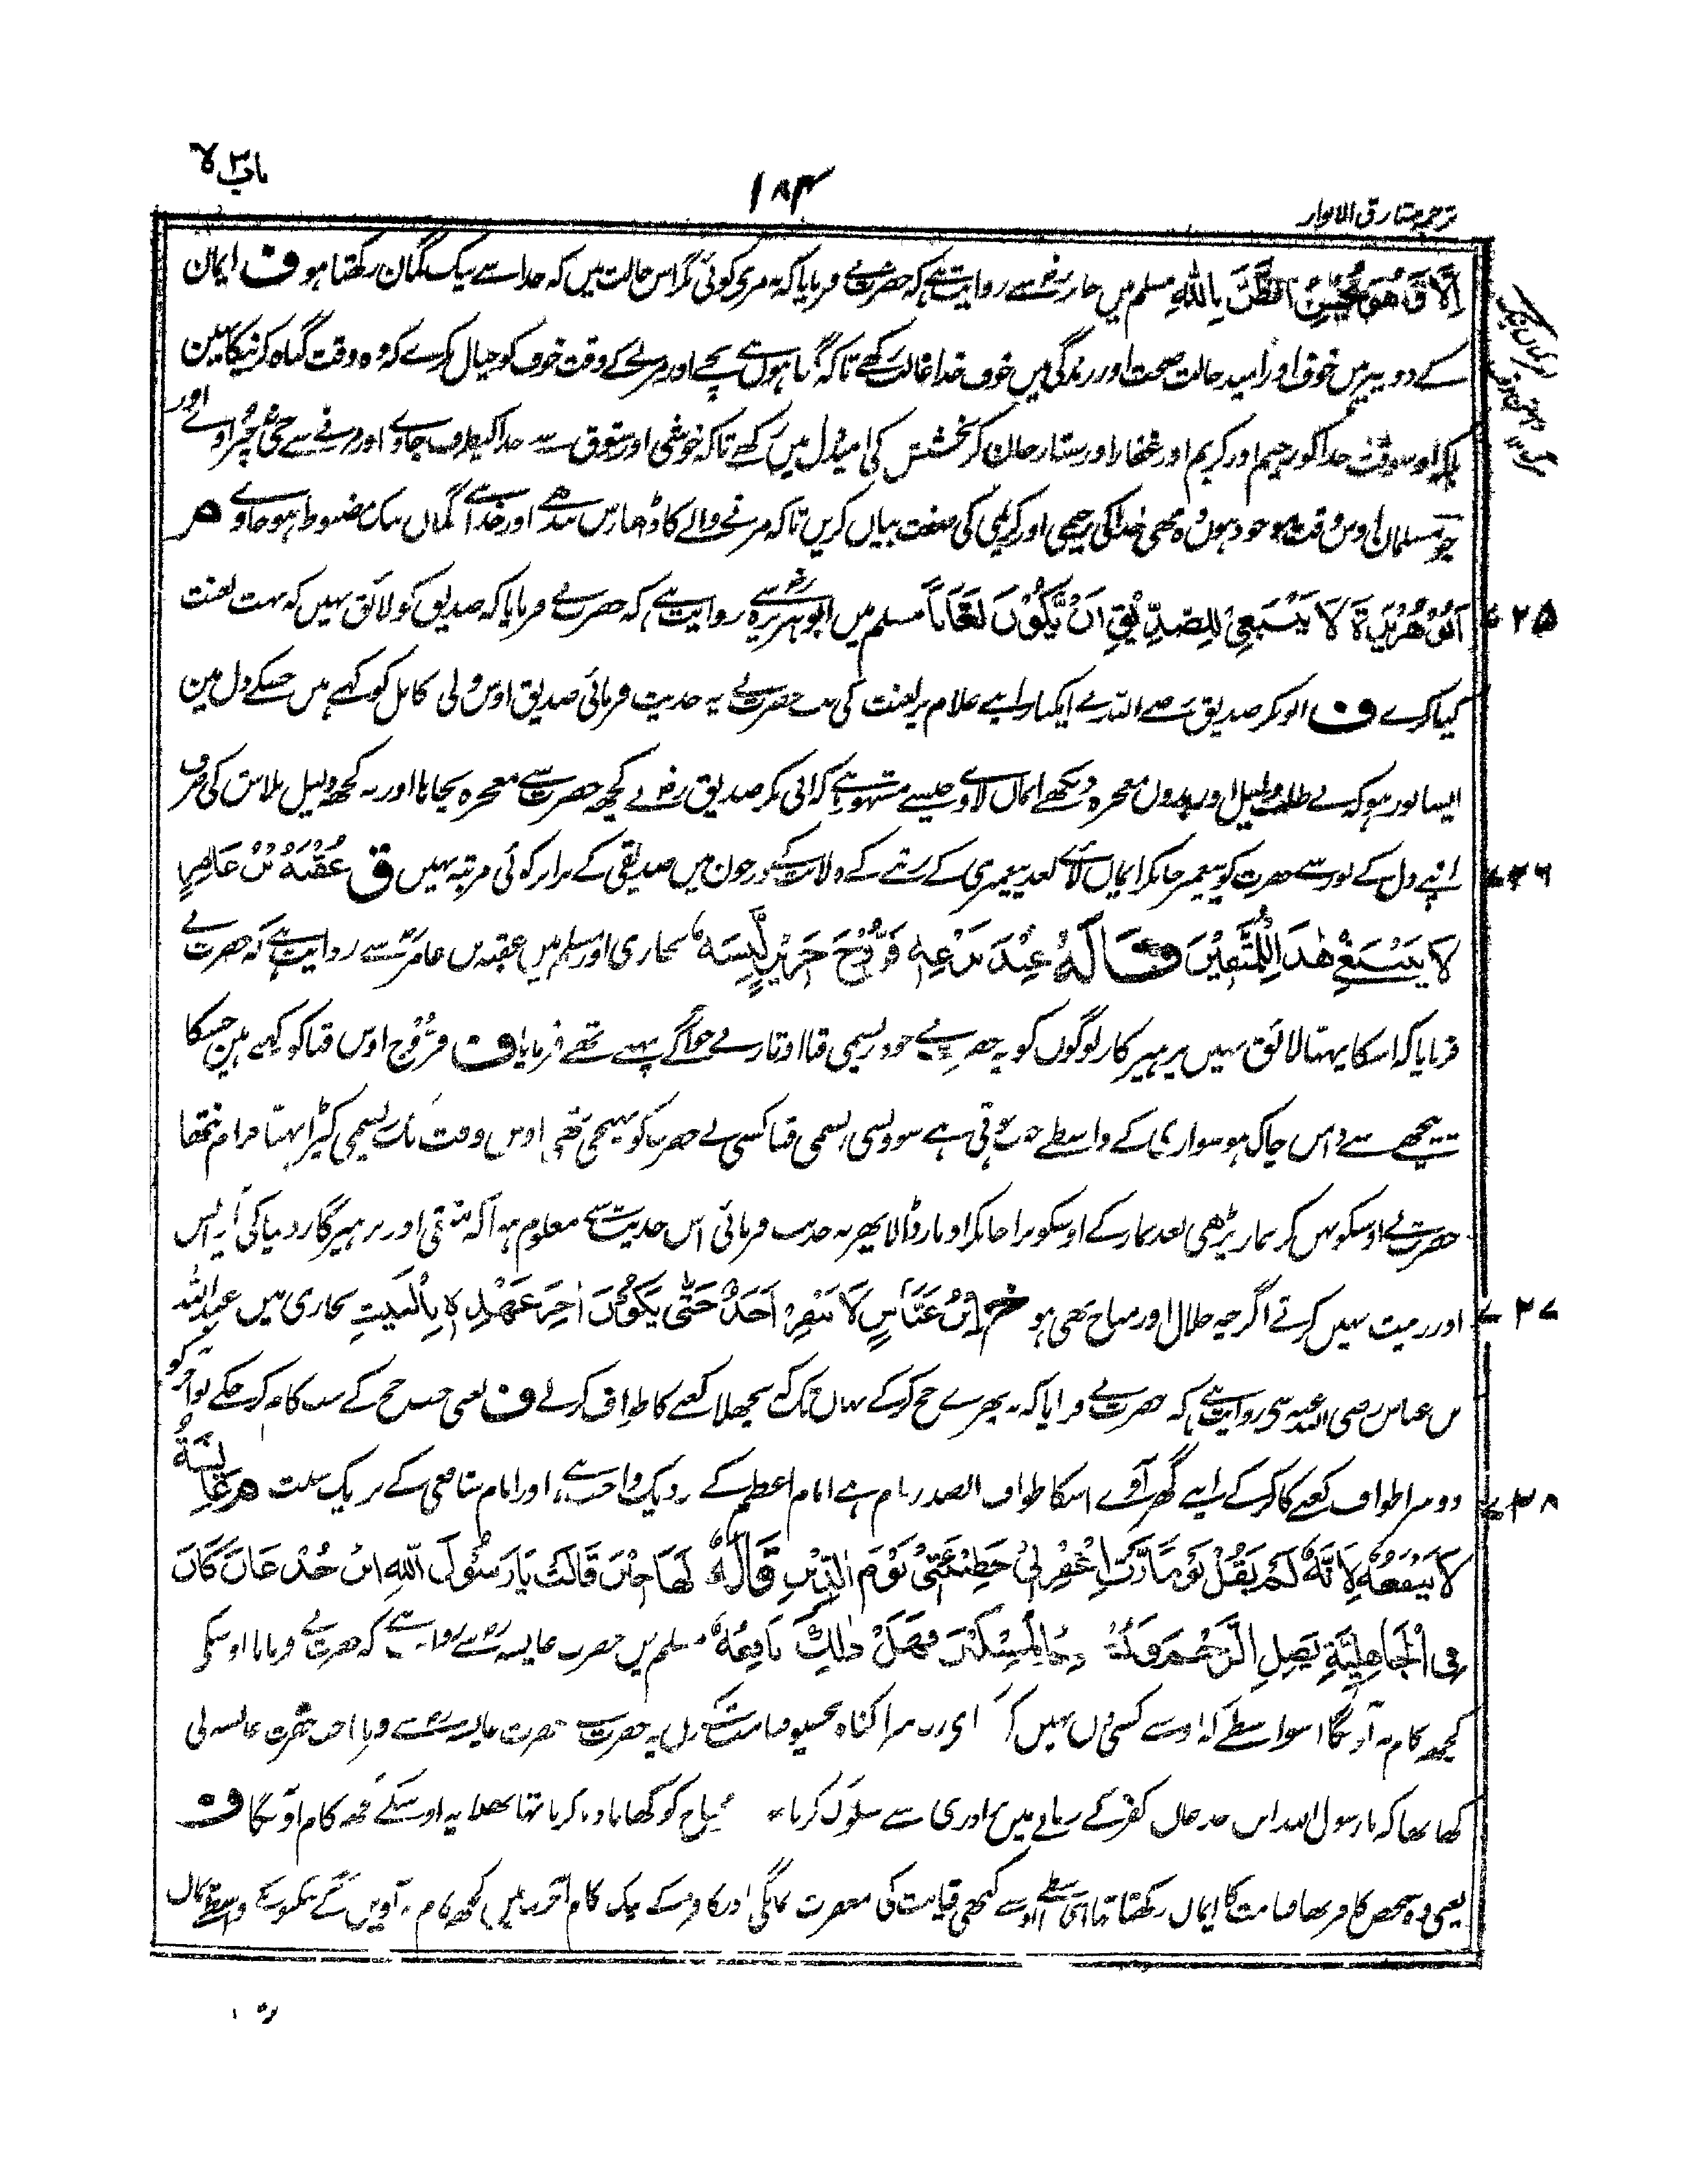 باب ٣ لا
١٨٣
ترجمہ مشارق الانوار
اِلَّا وَ هُوَ يُحْسِنُ الظَّنَّ بِاللهِ مسلم میں جابر رض سے روایت ہے کہ حضرت نے فرمایا کہ نہ مری کوئی مگر اس حالت میں کہ خدا سے نیک گمان رکھتا ہو ف ایمان
کے دو پر ہیں خوف اور امید حالت صحت اور زندگی میں خوف خدا غالب رکھے تاکہ گناہوں سے بچے اور مرنے کے وقت خوف کو خیال کرے کہ وہ وقت گناہ کرنیکا نہین
بلکہ اوسوقت خدا کو رحیم اور کریم اور غفار اور ستار جان کر بخشش کی امید دل میں رکھے تاکہ خوشی اور شوق سے خدا کیطرف جاوے اور مرنے سے جی نہ چراوے اور
جو مسلمان اوس وقت موجود ہوں وہ بھی خدا کی رحیمی اور کریمی کی صفت بیاں کریں تاکہ مرنے والے کا ڈھارس بندھے اور خدا سے گماں نیک مضبوط ہو جاوے م
٢٥
اَبُوْ هُرَيْرَةَ لَا يَنْبَغِيْ لِلصِّدِّيْقِ اَنْ يَّكُوْنَ لَعَّانًا مسلم میں ابو ہریرہ رض سے روایت ہے کہ حضرت نے فرمایا کہ صدیق کو لائق نہیں کہ بہت لعنت
کیا کرے ف ابو بکر صدیق رضے اللہ نے ایکبار اپنے غلام پر لعنت کی تب حضرت نے یہ حدیث فرمائی صدیق اوس ولی کامل کو کہتے ہیں جسکے دل مین
ایسا نور ہو کہ بے طلب دلیل اور بدون معجزہ دیکھے ایمان لاوے جیسے مشہور ہے کہ ابی بکر صدیق رض نے کچھ حضرت سے معجزہ نچاہا اور نہ کچھ دلیل تلاش کی صرف
٢٦
اپنے دل کے نور سے حضرت کو پیغمبر جانکر ایماں لائے بعد پیغمبری کے رتبے کے ولایت کے درجون میں صدیقی کے برابر کوئی مرتبہ نہیں ق عُقْبَةُ بْنُ عَامِرٍ
لَا يَنْبَغِيْ هٰذَا لِلْمُتَّقِيْنَ قَالَهُ عِنْدَ نَزْعِهٖ فَرُّوْجَ حَرِيْرٍ لَبِسَهٗ بخاری اور مسلم میں عقبہ بن عامر رض سے روایت ہے کہ حضرت نے
فرمایا کہ اسکا پہننا لائق نہیں پرہیزکار لوگوں کو یہ حضرت نے جو ریشمی قبا اوتار نے جو آگے پہنے تھے فرمایا ف فروج اوس قبا کو کہتے ہین جسکا
پیچھے سے دامن چاک ہو سواری کے واسطے خوب ہوتی ہے سو ویسی ریشمی قبا کسی نے حضرت کو بھیجی تھی اوس وقت تک ریشمی کپڑا پہننا حرام نتھا
حضرت نے اوسکو پہن کر نماز پڑھی بعد نماز کے اوسکو برا جانکر اوتار ڈالا پھر یہ حدیث فرمائی اس حدیث سے معلوم ہوا کہ متقی اور پرہیزگار دنیا کی آرایش
٢٧
اور زینت نہیں کرتے اگرچہ حلال اور مباح بھی ہو خ اِبْنُ عَبَّاسٍ لَا يَنْفِرْ اَحَدٌ حَتّٰى يَكُوْنَ اٰخِرَ عَهْدِهٖ بِالْبَيْتِ بخاری میں عبد اللہ
بن عباس رضی اللہ عنہ سی روایت ہے کہ حضرت نے فرمایا کہ نہ پھرے حج کر کے یہاں تک کہ پچھلا کعبے کا طواف کر لے ف یعنی جب حج کے سب کام کر چکے تو آخر کو
٢٨
دوسرا طواف کعبے کا کر کے اپنے گھر آوے اسکا طواف الصدر نام ہے امام اعظم کے نزدیک واجب ہے اور امام شافعی کے نزدیک سنت م عَائِشَةُ
لَا يَنْفَعُهٗ لِاَنَّهٗ لَمْ يَقُلْ يَوْمًا رَّبِّ اغْفِرْ لِيْ خَطِيْئَتِيْ يَوْمَ الدِّيْنِ قَالَهٗ لَهَا حِيْنَ قَالَتْ يَا رَسُوْلَ اللهِ ابْنُ جُدْعَانَ كَانَ
فِى الْجَاهِلِيَّةِ يَصِلُ الرَّحِمَ وَ يُطْعِمُ الْمِسْكِيْنَ فَهَلْ ذٰلِكَ نَافِعُهٗ مسلم میں حضرت عایشہ رض سے روایت ہے کہ حضرت نے فرمایا اوسکی
کچھ کام نہ آوگا اسواسطے کہ اوسے کسی دں نہیں کہا کہ ای رب میرا گناہ بخشیو قیامت کے دں یہ حضرت نے حضرت عایشہ رض سے فرمایا جب حضرت عایشہ نی
کہا تھا کہ یا رسول اللہ ابن جدعاں کفر کے زمانے میں برادری سے سلوک کرتا محتاج کو کھانا دیا کرتا تھا بھلا یہ اوسکے کچھ کام آوگا ف
یعنی وہ شخص کافر تھا قیامت کا ایماں نرکھتا تھا اسی واسطے اوسے کبھی قیامت کی مغفرت نمانگی اور کافر کے نیک کام آخرت میں کچھ کام نہ آویں گے کیونکہ واسطے ایمان